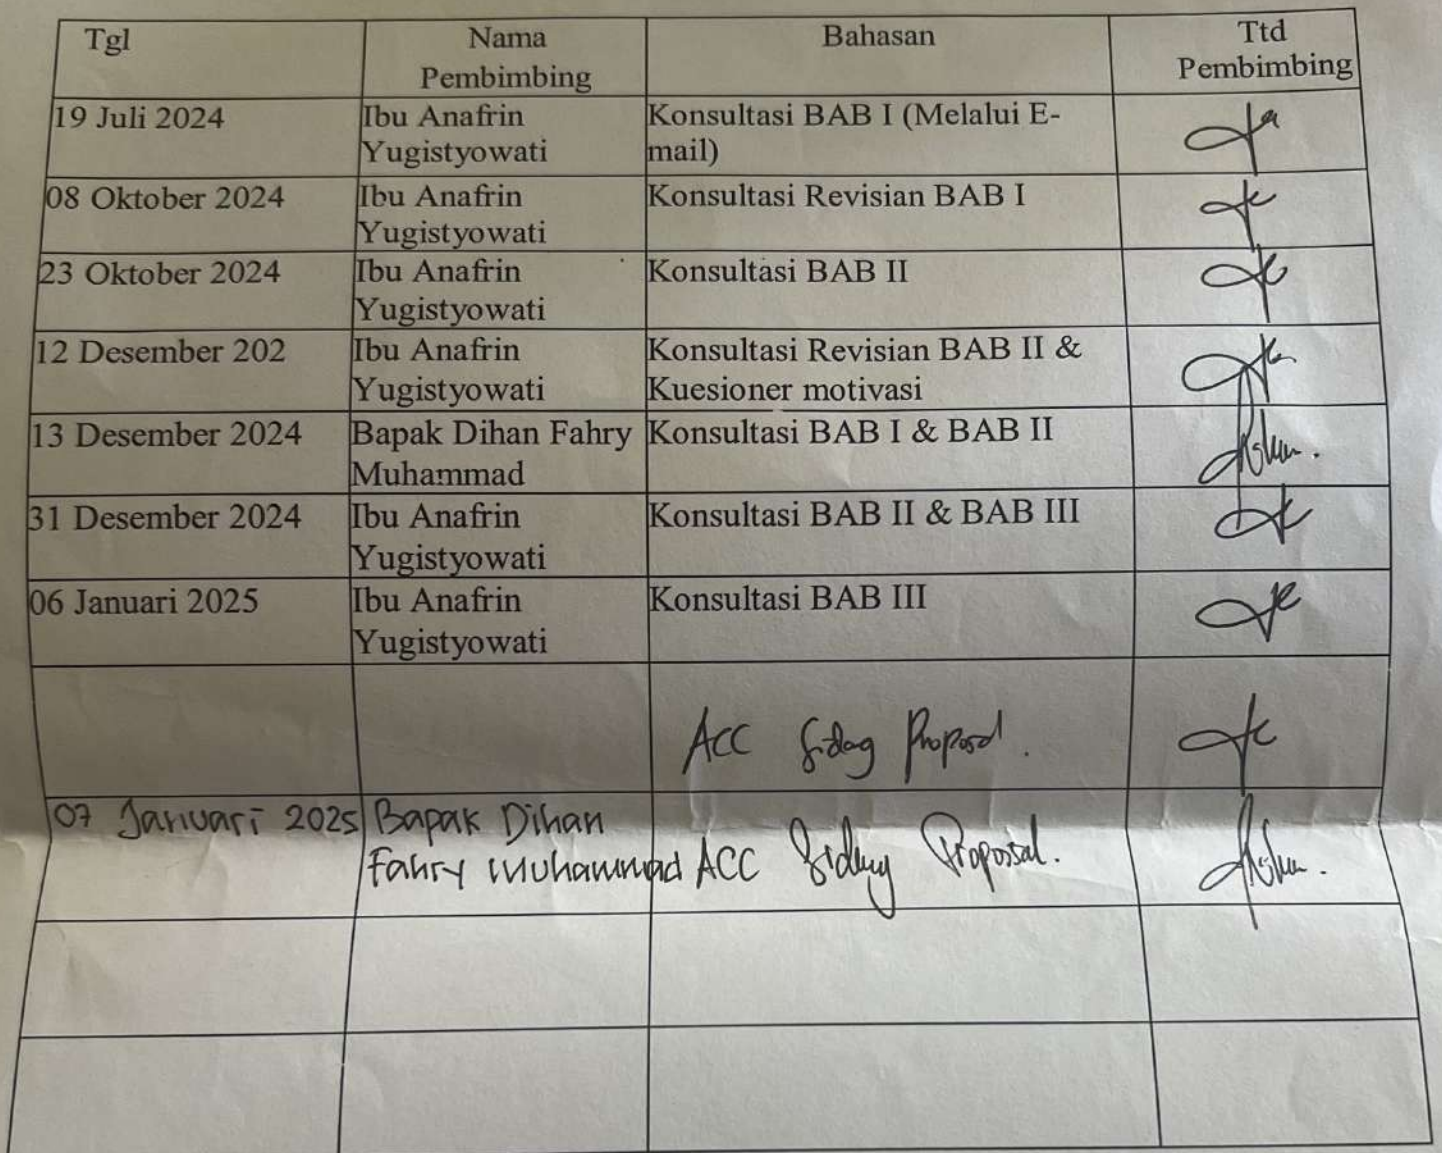 Tgl
Nama
Pembimbing
Bahasan
Ttd
Pembimbing
19 Juli 2024
Ibu Anafrin
Yugistyowati
Konsultasi BAB I (Melalui E-
mail)
08 Oktober 2024
Ibu Anafrin
Yugistyowati
Konsultasi Revisian BAB I
23 Oktober 2024
Ibu Anafrin
Yugistyowati
Konsultasi BAB II
12 Desember 202
Ibu Anafrin
Yugistyowati
Konsultasi Revisian BAB II &
Kuesioner motivasi
13 Desember 2024
Bapak Dihan Fahry
Muhammad
Konsultasi BAB I & BAB II
31 Desember 2024
Ibu Anafrin
Yugistyowati
Konsultasi BAB II & BAB III
06 Januari 2025
Ibu Anafrin
Yugistyowati
Konsultasi BAB III
ACC Sidang Proposal.
07 Januari 2025
Bapak Dihan
Fahry Muhammad
ACC Sidang Proposal.